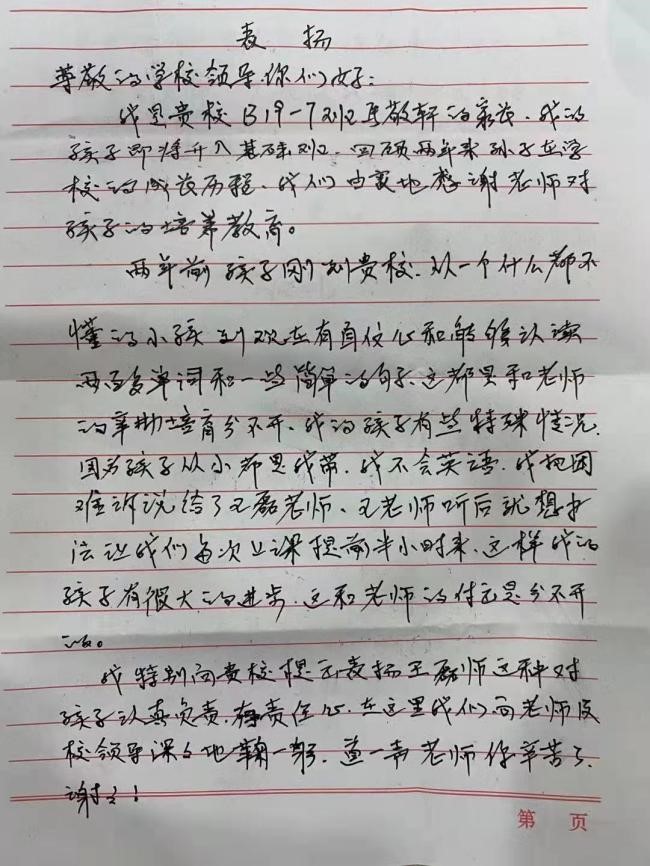 表扬
尊敬的学校领导你们好：
我是贵校B19-7班马敬轩的家长、我的
孩子即将升入基础班、回顾两年来孙子在学
校的成长历程、我们由衷地感谢老师对
孩子的培养教育。
两年前孩子刚到贵校、从一个什么都不
懂的小孩到现在有自信心和能够认读
两百多单词和一些简单的句子、这都是和老师
的辛勤培育分不开、我的孩子有些特殊情况、
因为孩子从小都是我带、我不会英语、我把困
难诉说给了王磊老师、王老师听后就想办
法让我们每次上课提前半小时来、这样我的
孩子有很大的进步、这和老师的付出是分不开
的。
我特别向贵校提出表扬王磊师这种对
孩子认真负责、有责任心、在这里我们向老师及
校领导深深地鞠一躬、道一声老师你辛苦了、
谢谢！
第 页